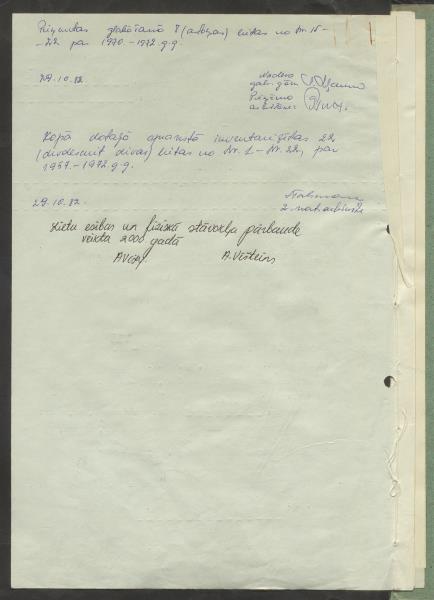 Pieņemtas glabāšanā 8 (astoņas) lietas no Nr. 15-
-22 par 1970.-1972.g.g.
29.10.82.
Nodeva
galv. gām.
Pieņēma
arhīviste:
Kopā dotajā aprakstā inventarizētas 22
(divdesmit divas) lietas no Nr. 1.-Nr. 22, par
1957.-1972.g.g.
29.10.82.
Lietu esības un fiziskā stāvokļa pārbaude
veikta 2000 gadā
A. Vēsteins